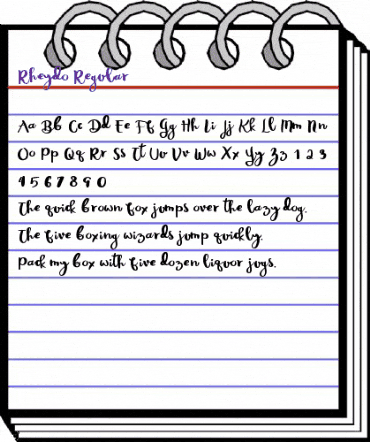 Rheydo Regular
Aa Bb Cc Dd Ee Ff Gg Hh Ii Jj Kk Ll Mm Nn
Oo Pp Qq Rr Ss Tt Uu Vv Ww Xx Yy Zz 1 2 3
4 5 6 7 8 9 0
The quick brown fox jumps over the lazy dog.
The five boxing wizards jump quickly.
Pack my box with five dozen liquor jugs.